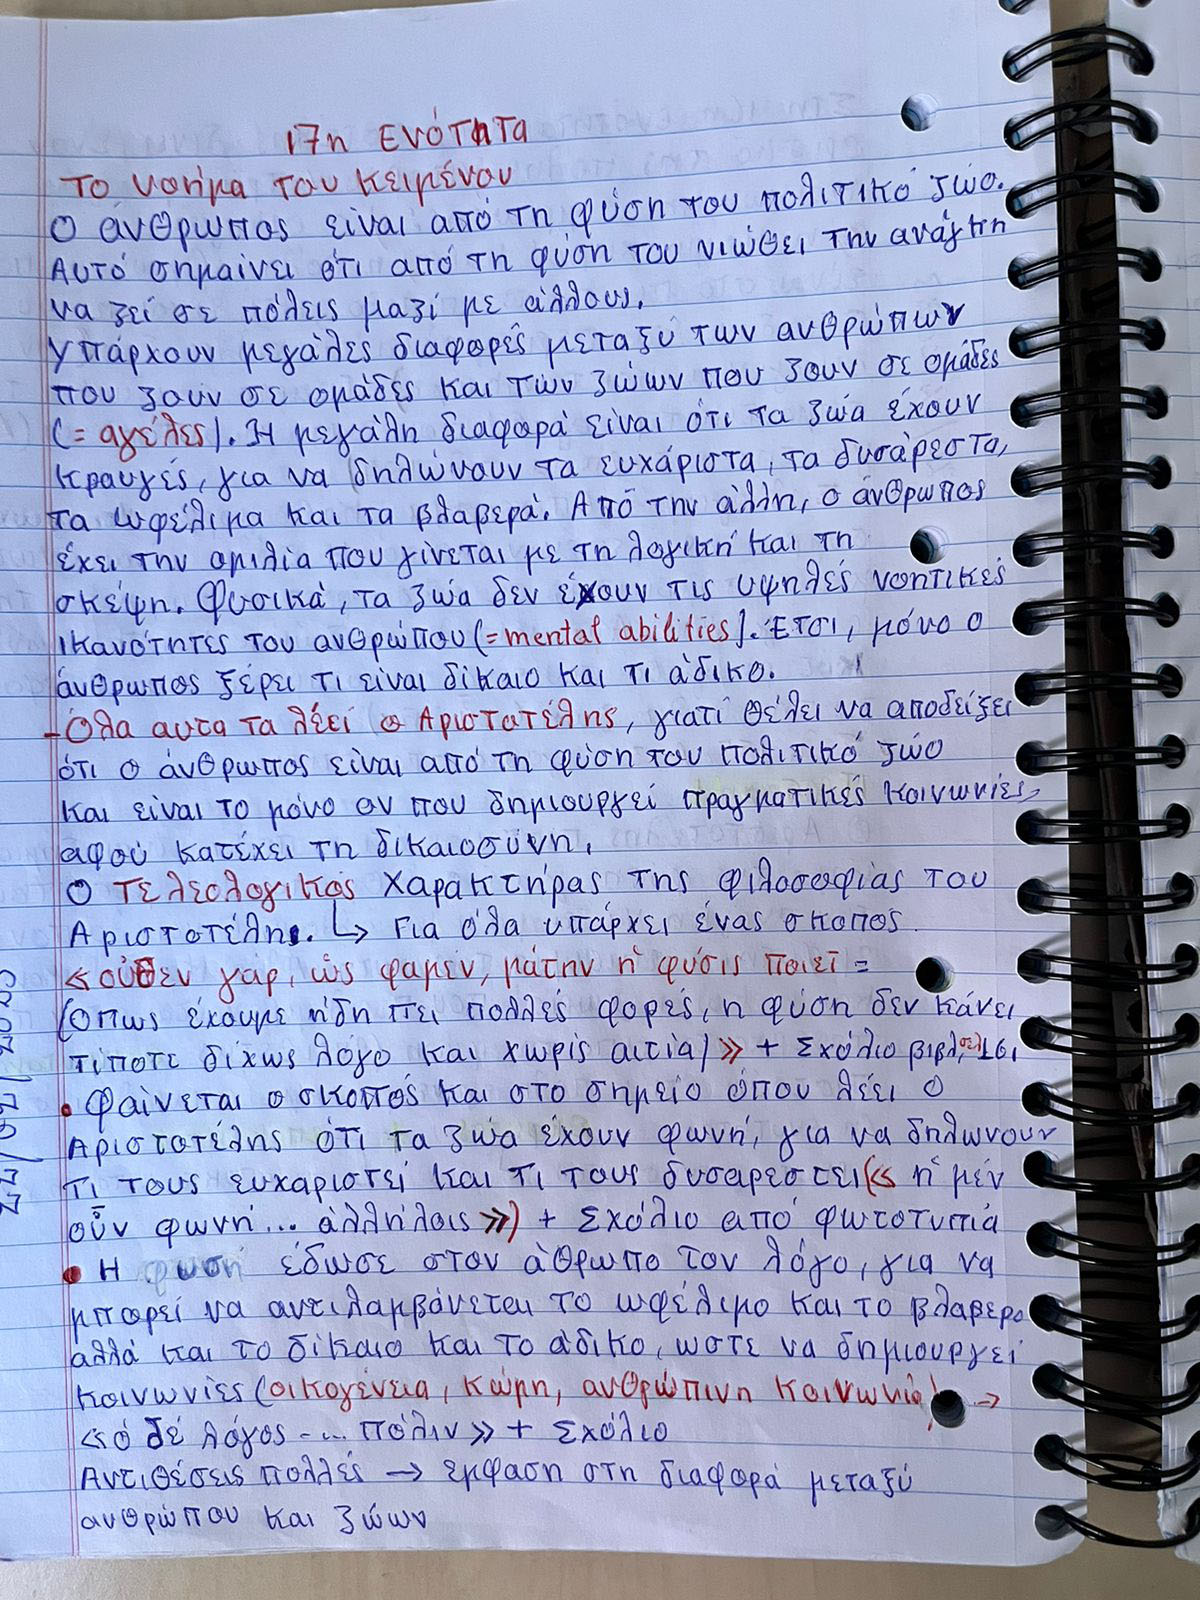 17η Ενότητα
Το νόημα του κειμένου
Ο άνθρωπος είναι από τη φύση του πολιτικό ζώο.
Αυτό σημαίνει ότι από τη φύση του νιώθει την ανάγκη
να ζεί σε πόλεις μαζί με άλλους.
Υπάρχουν μεγάλες διαφορές μεταξύ των ανθρώπων
που ζουν σε ομάδες και των ζώων που ζουν σε ομάδες
(= αγέλες). Η μεγάλη διαφορά είναι ότι τα ζώα έχουν
κραυγές, για να δηλώνουν τα ευχάριστα, τα δυσάρεστα,
τα ωφέλιμα και τα βλαβερά. Από την άλλη, ο άνθρωπος
έχει την ομιλία που γίνεται με τη λογική και τη
σκέψη. Φυσικά, τα ζώα δεν έχουν τις υψηλές νοητικές
ικανότητες του ανθρώπου (= mental abilities). Έτσι, μόνο ο
άνθρωπος ξέρει τι είναι δίκαιο και τι άδικο.
- Όλα αυτα τα λέει ο Αριστοτέλης, γιατί θέλει να αποδείξει
ότι ο άνθρωπος είναι από τη φύση του πολιτικό ζώο
και είναι το μόνο ον που δημιουργεί πραγματικές κοινωνίες,
αφού κατέχει τη δικαιοσύνη.
Ο τελεολογικός χαρακτήρας της φιλοσοφίας του
Αριστοτέλη. ↳ Για όλα υπάρχει ένας σκοπός.
«οὐθεν γάρ, ὡς φαμέν, μάτην ἡ φύσις ποιεῖ =
(Όπως έχουμε ήδη πει πολλές φορές, η φύση δεν κάνει
τίποτε δίχως λόγο και χωρίς αιτία)» + Σχόλιο βιβλ. σελ 161
• Φαίνεται ο σκοπός και στο σημείο όπου λέει ο
Αριστοτέλης ότι τα ζώα έχουν φωνή, για να δηλώνουν
τι τους ευχαριστεί και τι τους δυσαρεστεί (« ἡ μέν
οὖν φωνή... ἀλλήλοις ») + Σχόλιο από φωτοτυπία
• Η φυσή έδωσε στον άθρωπο τον λόγο, για να
μπορεί να αντιλαμβάνεται το ωφέλιμο και το βλαβερο
αλλά και το δίκαιο και το άδικο, ωστε να δημιουργεί
κοινωνίες (οικογένεια, κώμη, ανθρώπινη κοινωνία) →
«ὁ δέ λόγος -... πόλιν» + Σχόλιο
Αντιθέσεις πολλές → έμφαση στη διαφορά μεταξύ
ανθρώπου και ζώων